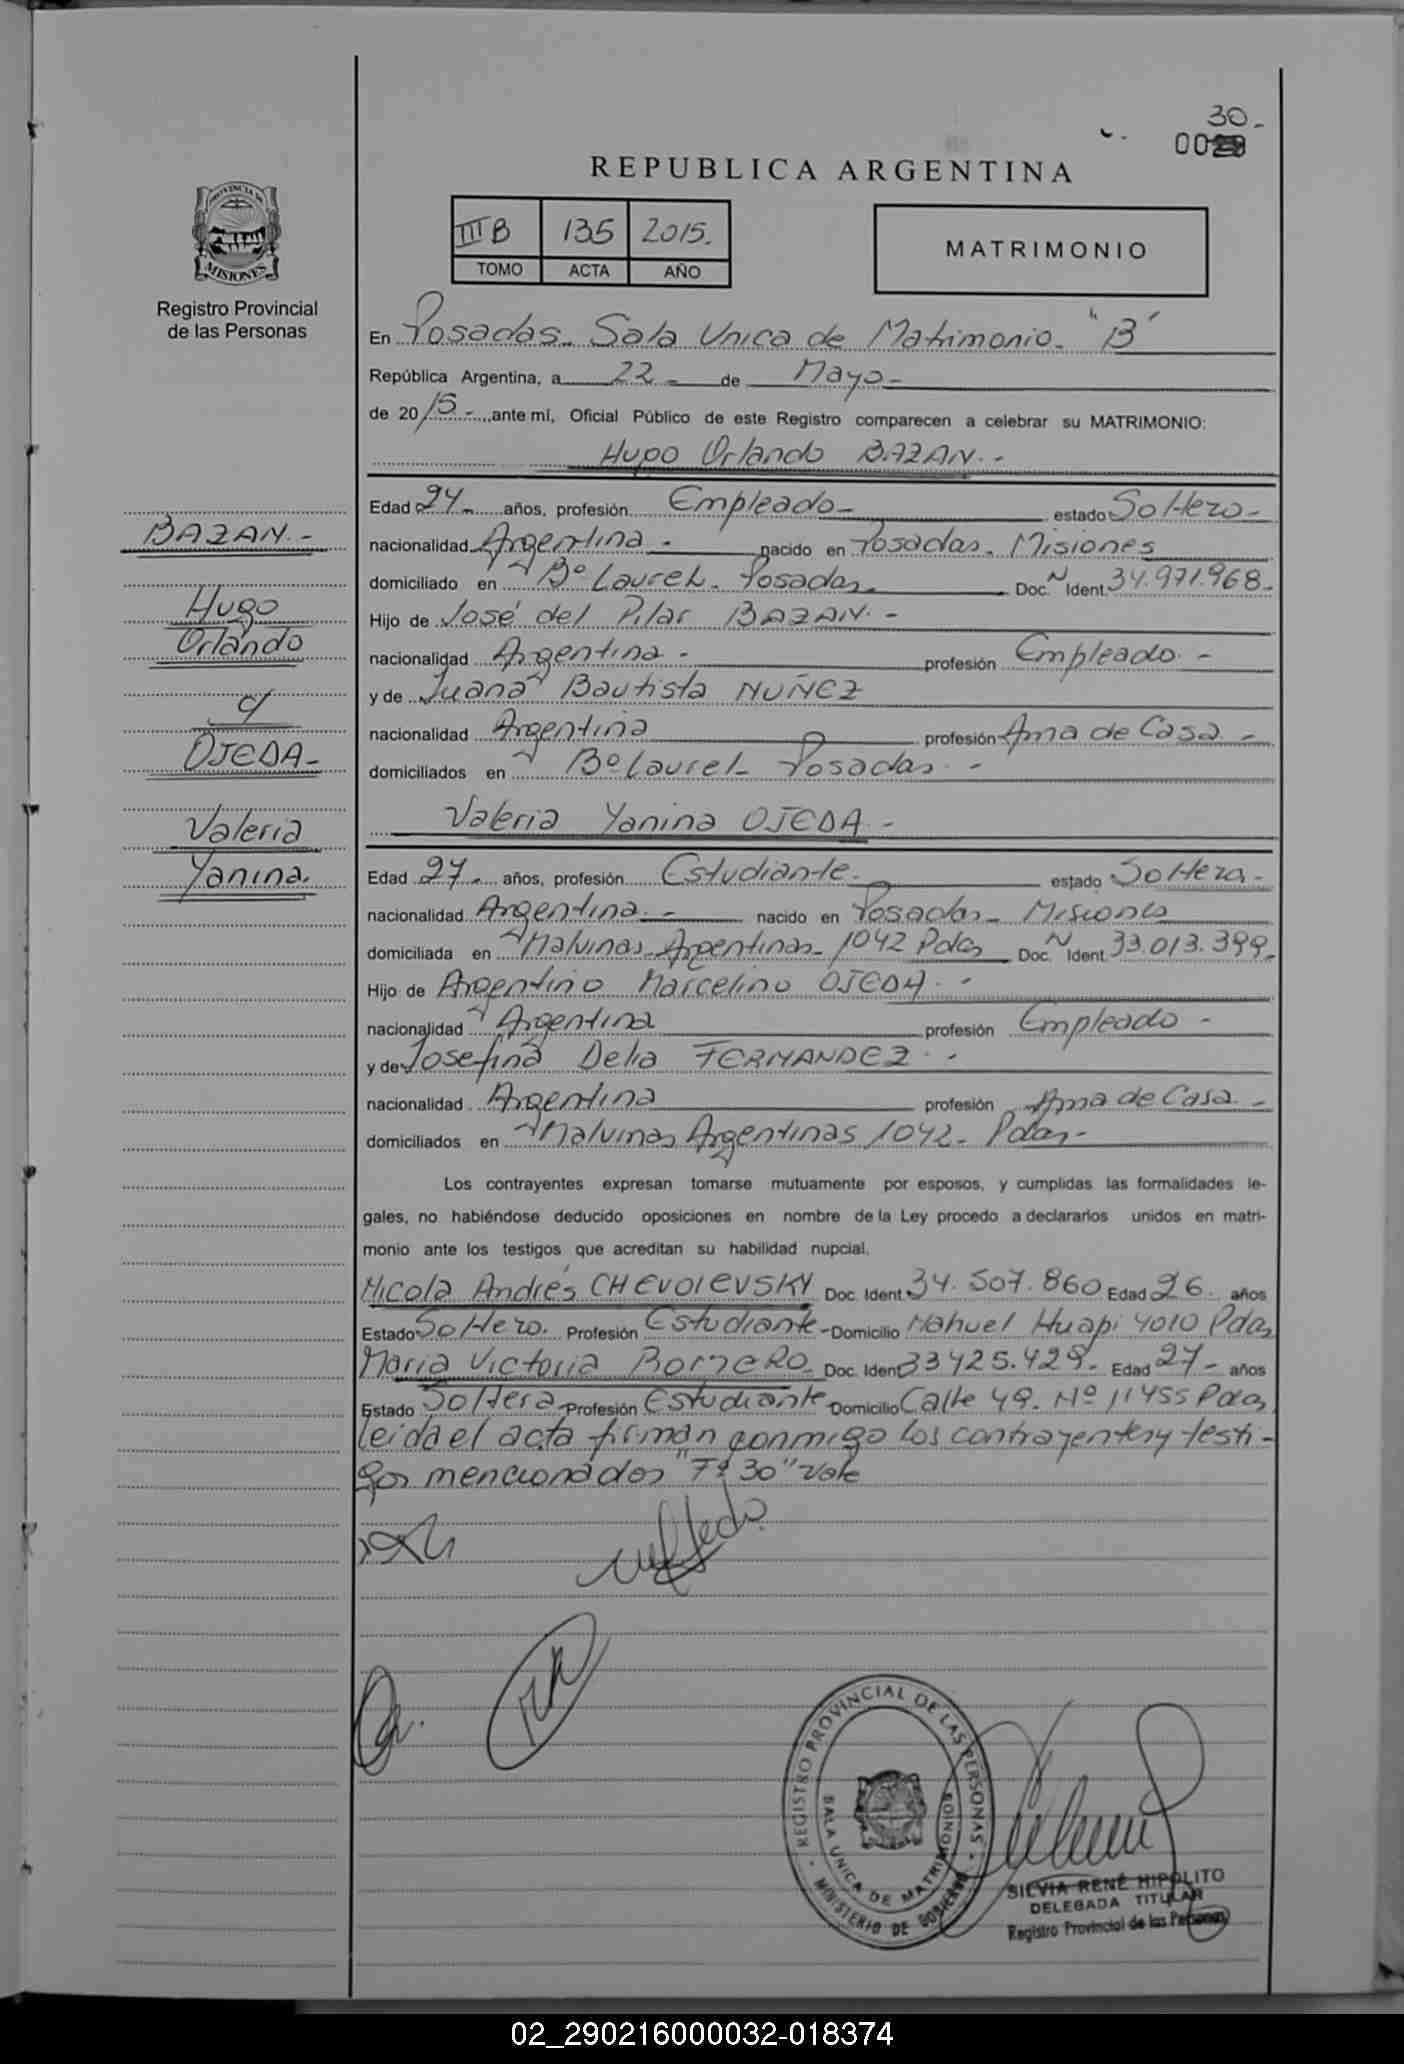 30.-
00
REPUBLICA ARGENTINA
III B 135 2015.
TOMO ACTA AÑO
MATRIMONIO
PROVINCIA DE
MISIONES
Registro Provincial
de las Personas
En Posadas. Sala Unica de Matrimonio. "B"
República Argentina, a 22 - de Mayo -
de 2015 -, ante mí, Oficial Público de este Registro comparecen a celebrar su MATRIMONIO:
Hugo Orlando BAZAN. -
Edad 24 - años, profesión Empleado - estado Soltero -
nacionalidad Argentina - nacido en Posadas. Misiones
domiciliado en Bº Laurel. Posadas. Doc. N Ident. 34.971.968 -
Hijo de José del Pilar BAZAN. -
nacionalidad Argentina - profesión Empleado. -
y de Juana Bautista NUÑEZ
nacionalidad Argentina profesión Ama de Casa. -
domiciliados en Bº Laurel - Posadas. -
Valeria Yanina OJEDA. -
Edad 27 - años, profesión Estudiante. estado Soltera. -
nacionalidad Argentina. - nacido en Posadas - Misiones
domiciliada en Malvinas Argentinas - 1042 Pdas Doc. N Ident. 33.013.399 -
Hijo de Argentino Marcelino OJEDA. -
nacionalidad Argentina profesión Empleado -
y de Josefina Delia FERNANDEZ. -
nacionalidad Argentina profesión Ama de Casa. -
domiciliados en Malvinas Argentinas 1042 - Pdas -
Los contrayentes expresan tomarse mutuamente por esposos, y cumplidas las formalidades le-
gales, no habiéndose deducido oposiciones en nombre de la Ley procedo a declararlos unidos en matri-
monio ante los testigos que acreditan su habilidad nupcial.
Nicola Andrés CHEVOLEVSKY Doc. Ident. 34.507.860 Edad 26. años
Estado Soltero. Profesión Estudiante - Domicilio Nahuel Huapi 4010 Pdas
Maria Victoria ROMERO - Doc. Ident. 33425.429 - Edad 27 - años
Estado Soltera - Profesión Estudiante - Domicilio Calle 49. Nº 11455 Pdas
leida el acta firman conmigo los contrayentes y testi-
gos mencionados "Fº 30" Vale
BAZAN. -
Hugo
Orlando
c/
OJEDA -
Valeria
Yanina.
REGISTRO PROVINCIAL DE LAS PERSONAS
SALA UNICA DE MATRIMONIOS
MINISTERIO DE GOBIERNO
SILVIA RENÉ HIPOLITO
DELEGADA TITULAR
Registro Provincial de las Personas
02_290216000032-018374